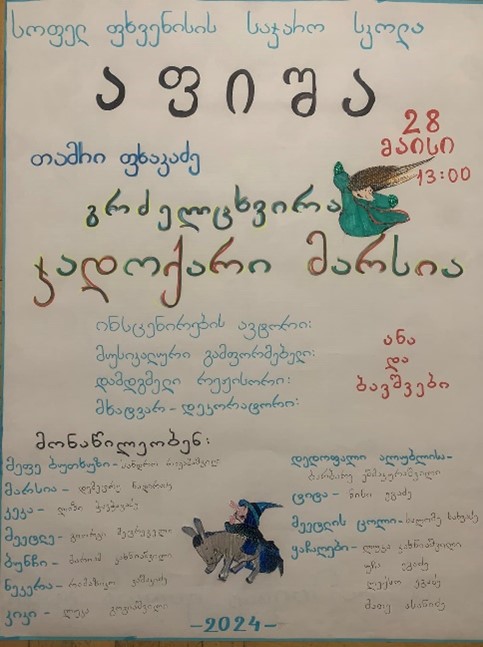 სოფელ ფხვენისის საჯარო სკოლა
აფიშა
28
მაისი
13:00
თამრი ფხაკაძე
გრძელცხვირა
ჯადოქარი მარსია
ინსცენირების ავტორი:
მუსიკალური გამფორმებელი:
დამდგმელი რეჟისორი:
მხატვარ-დეკორატორი:
ანა
და
ბავშვები
მონაწილეობენ:
მეფე ბუთხუზი-
მარსია-
კეკა- ლიზი
მეეტლე- გიორგი
ბუნჩი- მარიამ
ნეკერა-
კიკი- ლუკა
დედოფალი ალუბლისა-
ბარბარე
ციცა- ნინი
მეეტლის ცოლი- სალომე
ყაჩაღები- ლუკა
უჩა
ლექსო
მათე
-2024-